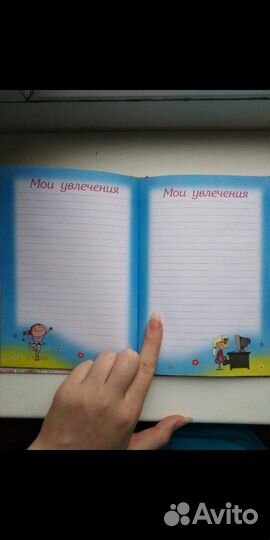 Мои увлечения
Мои увлечения
Avito